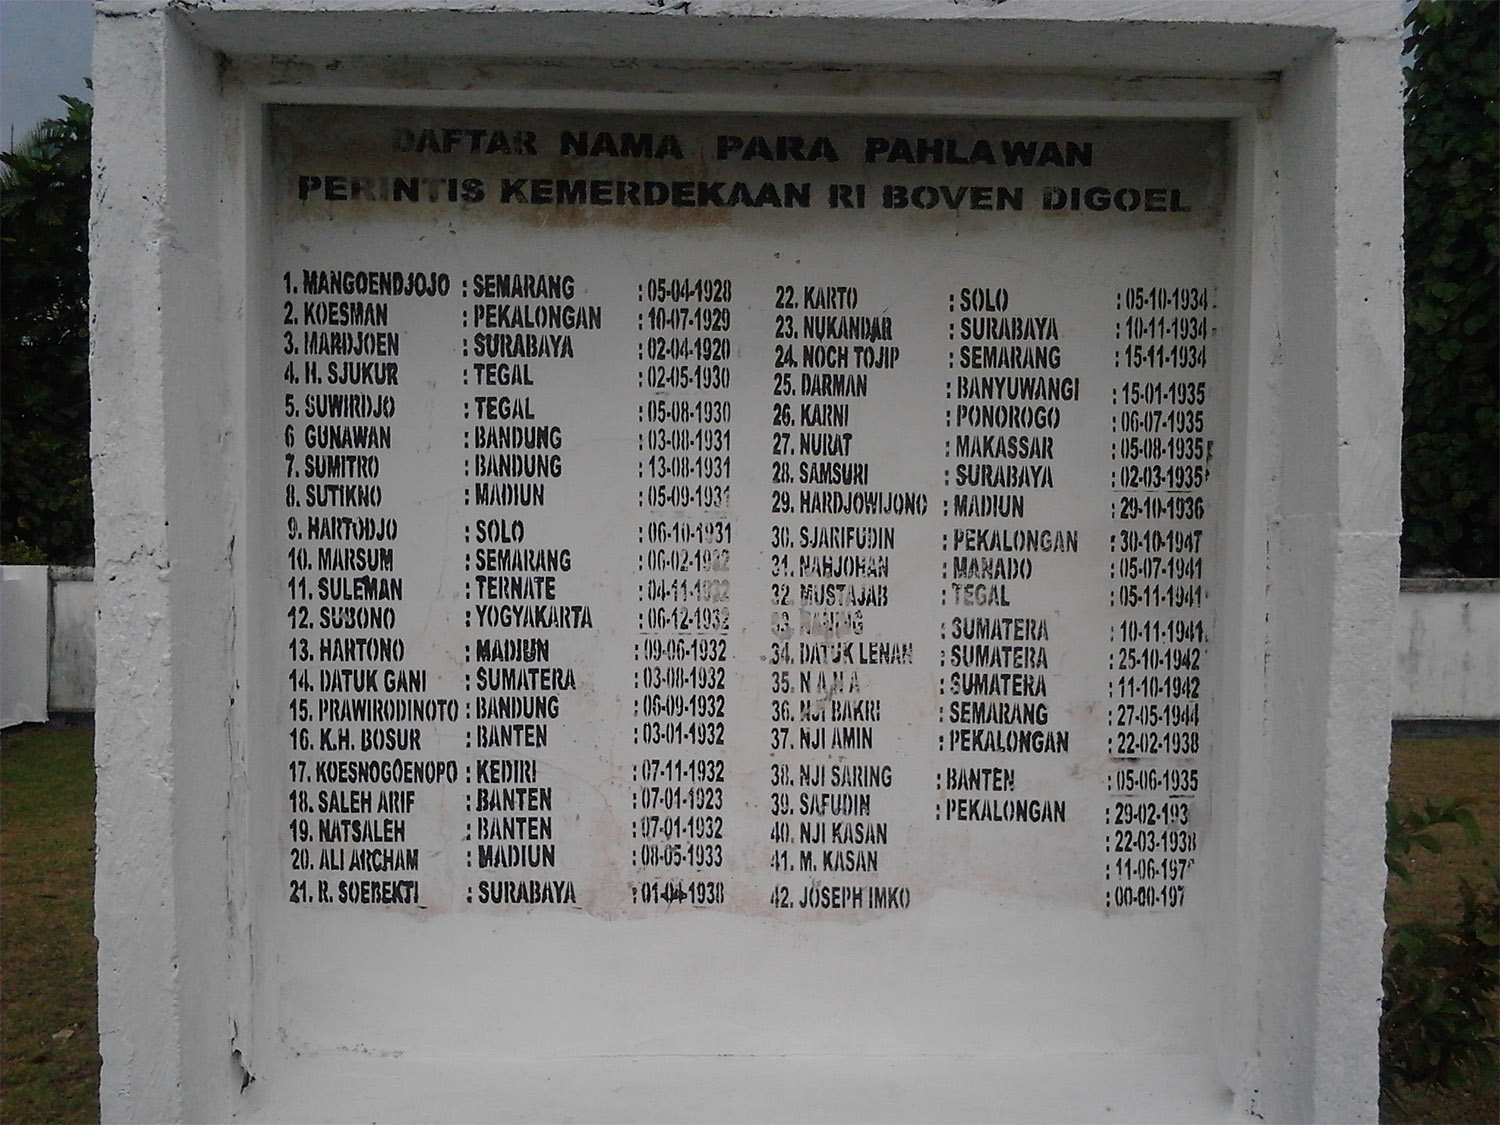 DAFTAR NAMA PARA PAHLAWAN
PERINTIS KEMERDEKAAN RI BOVEN DIGOEL
1. MANGOENDJOJO : SEMARANG : 05-04-1928
2. KOESMAN : PEKALONGAN : 10-07-1929
3. MARDJOEN : SURABAYA : 02-04-1920
4. H. SJUKUR : TEGAL : 02-05-1930
5. SUWIRDJO : TEGAL : 05-08-1930
6 GUNAWAN : BANDUNG : 03-08-1931
7. SUMITRO : BANDUNG : 13-08-1931
8. SUTIKNO : MADIUN : 05-09-1931
9. HARTODJO : SOLO : 06-10-1931
10. MARSUM : SEMARANG : 06-02-1932
11. SULEMAN : TERNATE : 04-11-1932
12. SUBONO : YOGYAKARTA : 06-12-1932
13. HARTONO : MADIUN : 09-06-1932
14. DATUK GANI : SUMATERA : 03-08-1932
15. PRAWIRODINOTO : BANDUNG : 06-09-1932
16. K.H. BOSUR : BANTEN : 03-01-1932
17. KOESNOGOENOPO : KEDIRI : 07-11-1932
18. SALEH ARIF : BANTEN : 07-01-1923
19. NATSALEH : BANTEN : 07-01-1932
20. ALI ARCHAM : MADIUN : 08-05-1933
21. R. SOEBEKTI : SURABAYA : 01-04-1938
22. KARTO : SOLO : 05-10-1934
23. NUKANDAR : SURABAYA : 10-11-1934
24. NOCH TOJIP : SEMARANG : 15-11-1934
25. DARMAN : BANYUWANGI : 15-01-1935
26. KARNI : PONOROGO : 06-07-1935
27. NURAT : MAKASSAR : 05-08-1935
28. SAMSURI : SURABAYA : 02-03-1935
29. HARDJOWIJONO : MADIUN : 29-10-1936
30. SJARIFUDIN : PEKALONGAN : 30-10-1947
31. NAHJOHAN : MANADO : 05-07-1941
32. MUSTAJAB : TEGAL : 05-11-1941
33. : SUMATERA : 10-11-1941
34. DATUK LENAN : SUMATERA : 25-10-1942
35. NANA : SUMATERA : 11-10-1942
36. NJI BAKRI : SEMARANG : 27-05-1944
37. NJI AMIN : PEKALONGAN : 22-02-1938
38. NJI SARING : BANTEN : 05-06-1935
39. SAFUDIN : PEKALONGAN : 29-02-193
40. NJI KASAN : 22-03-1938
41. M. KASAN : 11-06-197
42. JOSEPH IMKO : 00-00-197